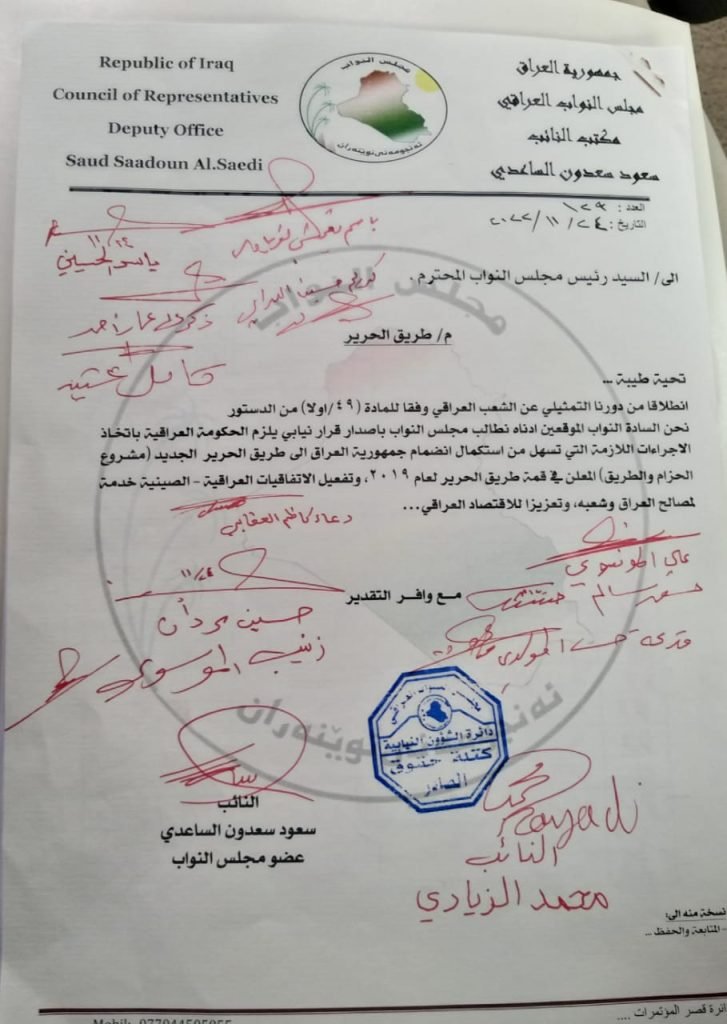 Republic of Iraq
Council of Representatives
Deputy Office
Saud Saadoun Al.Saedi
مجلس النواب
ئه نجومه نى نوێنه ران
جمهورية العراق
مجلس النواب العراقي
مكتب النائب
سعود سعدون الساعدي
العدد : ١٢٩
التاريخ: ٢٤/ ١١/ ٢٠٢٢
ياسر الحسيني
١١/٢٤
الى/ السيد رئيس مجلس النواب المحترم .
م/ طريق الحرير
كامل
تحية طيبة ...
انطلاقا من دورنا التمثيلي عن الشعب العراقي وفقا للمادة (٤٩/اولا) من الدستور
نحن السادة النواب الموقعين ادناه نطالب مجلس النواب باصدار قرار نيابي يلزم الحكومة العراقية باتخاذ
الاجراءات اللازمة التي تسهل من استكمال انضمام جمهورية العراق الى طريق الحرير الجديد (مشروع
الحزام والطريق) المعلن في قمة طريق الحرير لعام ٢٠١٩، وتفعيل الاتفاقيات العراقية – الصينية خدمة
لمصالح العراق وشعبه، وتعزيزا للاقتصاد العراقي...
دعاء كاظم العقابي
١١/٢٤
مع وافر التقدير
حسين مردان
زينب الموسوي
مجلس النواب العراقي
دائرة الشؤون النيابية
كتلة حقوق
الصادر
النائب
سعود سعدون الساعدي
عضو مجلس النواب
النائب
محمد الزيادي
نسخة منه الى:
- المتابعة والحفظ ...
دائرة قصر المؤتمرات ....